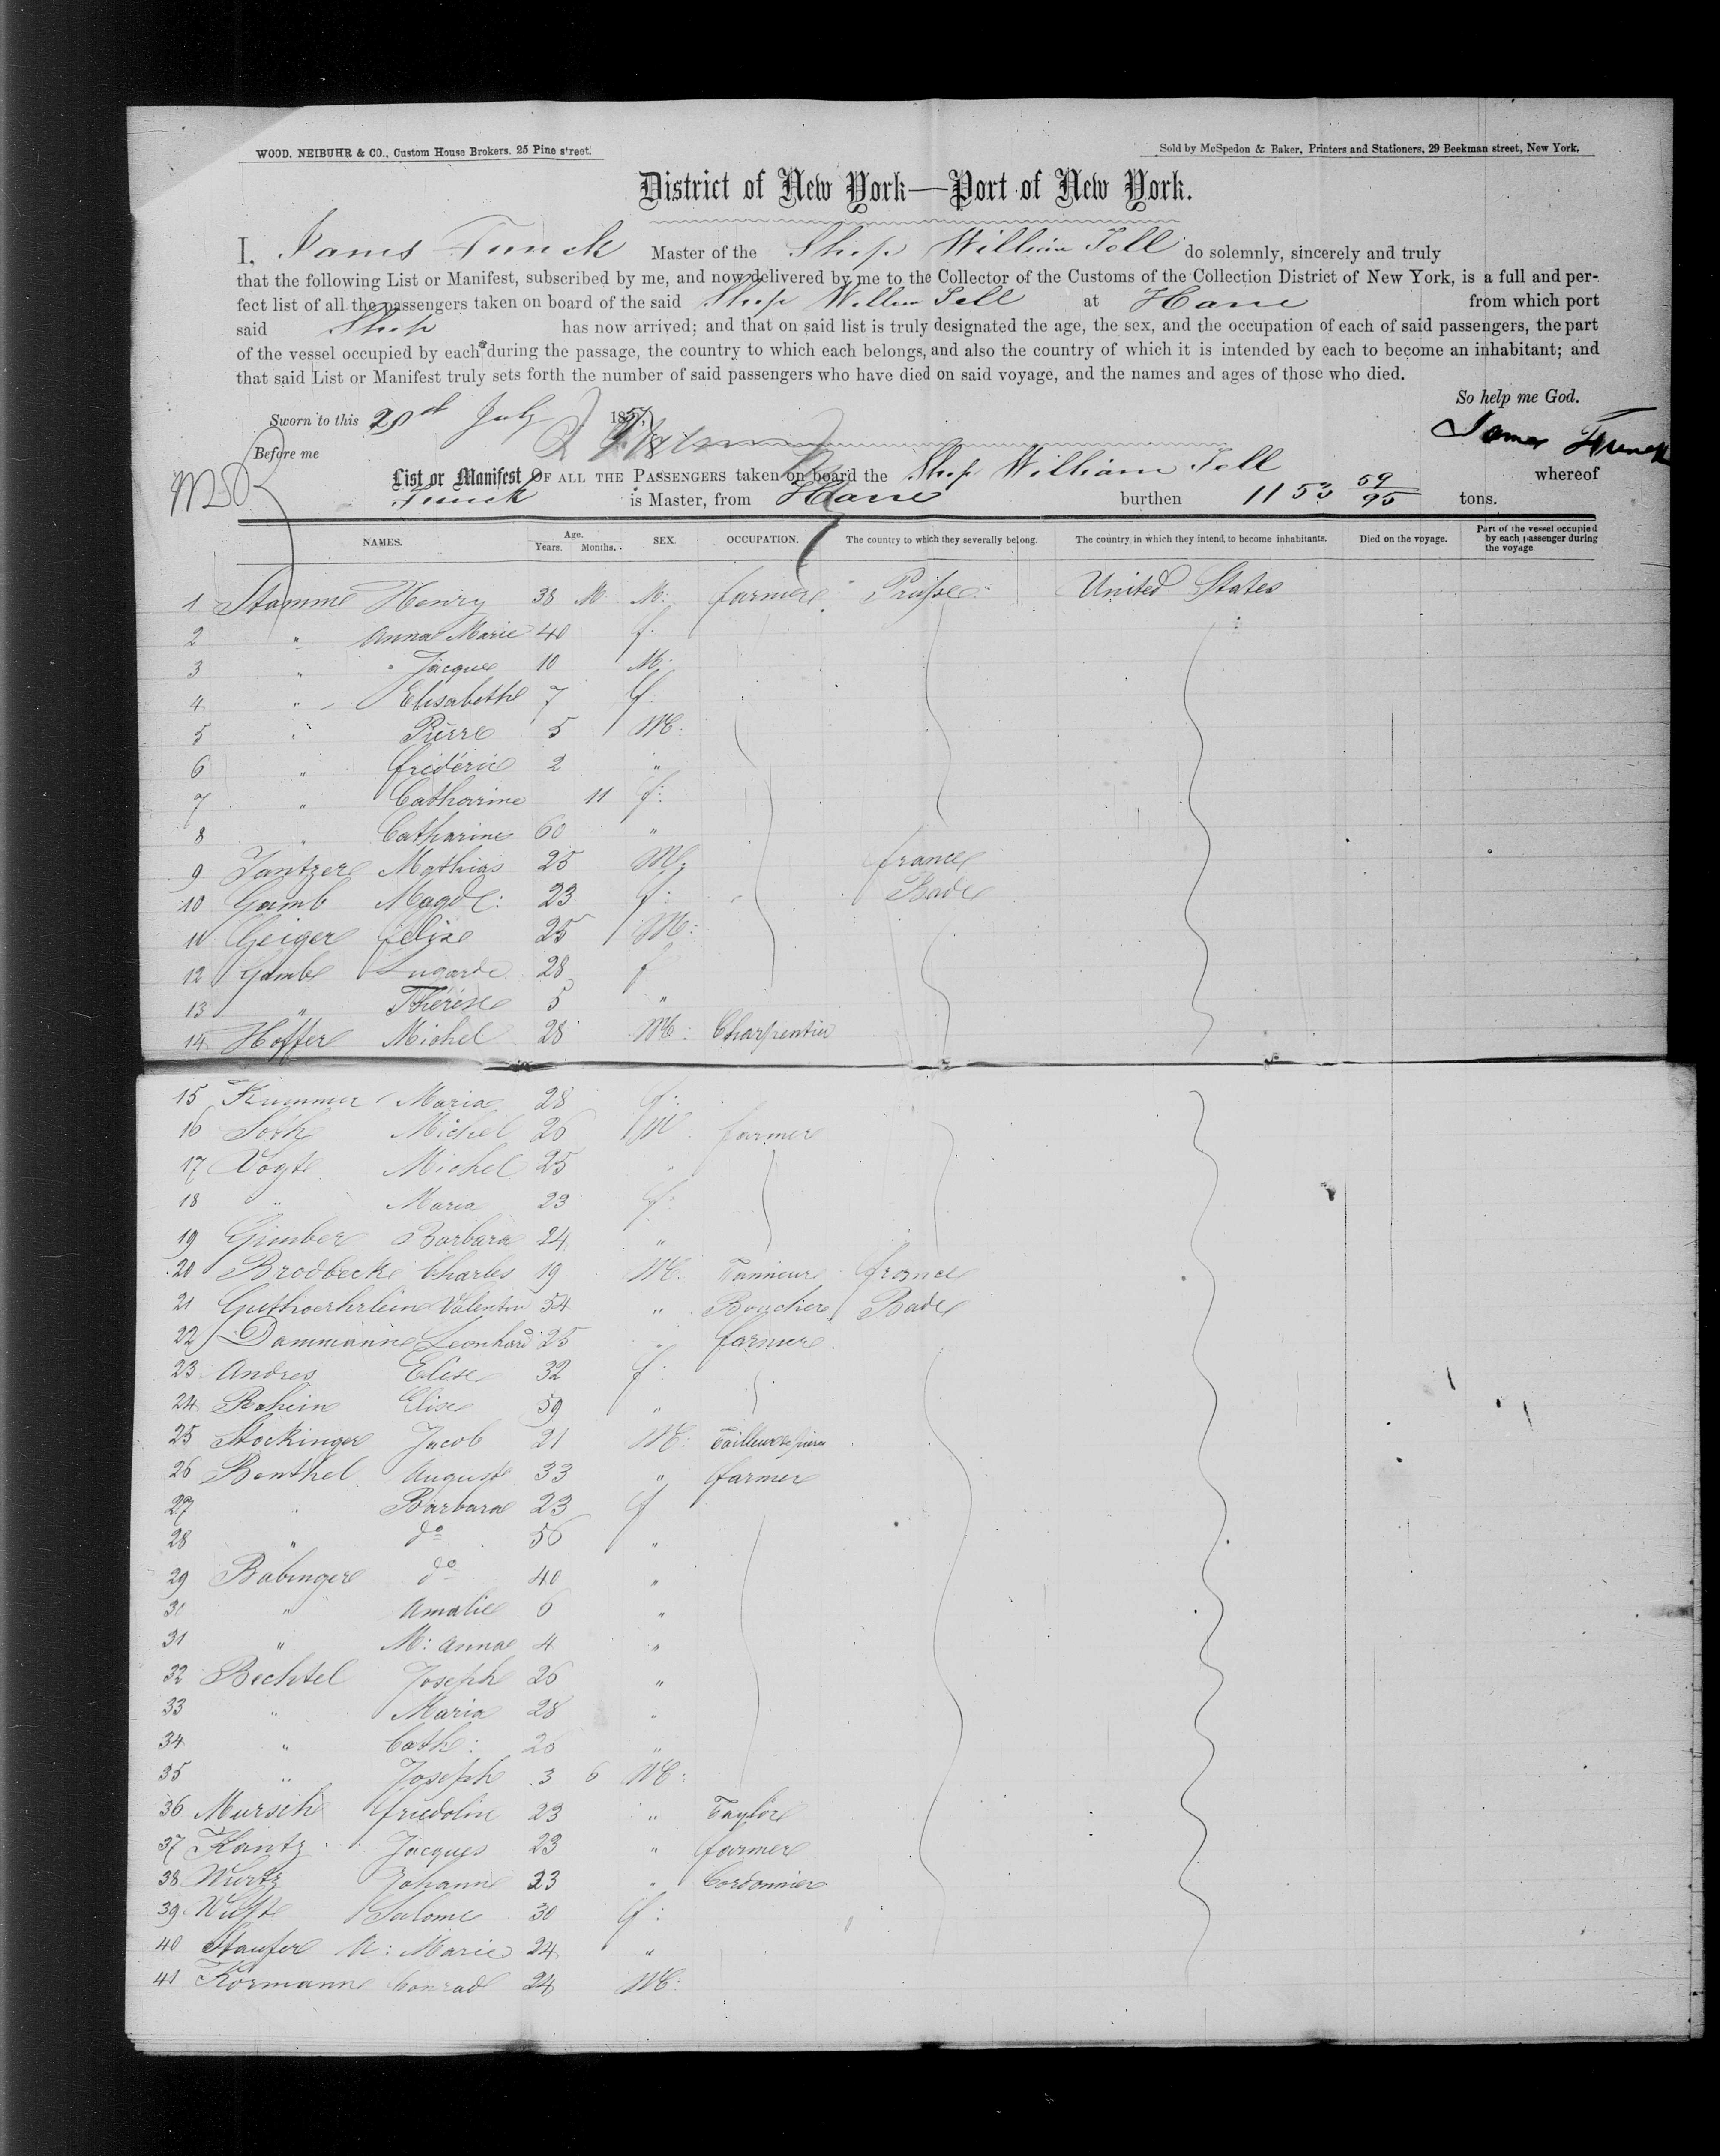 WOOD, NEIBUHR & CO., Custom House Brokers, 25 Pine street.
Sold by McSpedon & Baker, Printers and Stationers, 29 Beekman street, New York.
District of New York—Port of New York.
I, James Funck Master of the Ship William Tell do solemnly, sincerely and truly
that the following List or Manifest, subscribed by me, and now delivered by me to the Collector of the Customs of the Collection District of New York, is a full and per-
fect list of all the passengers taken on board of the said Ship William Tell at Havre from which port
said Ship has now arrived; and that on said list is truly designated the age, the sex, and the occupation of each of said passengers, the part
of the vessel occupied by each during the passage, the country to which each belongs, and also the country of which it is intended by each to become an inhabitant; and
that said List or Manifest truly sets forth the number of said passengers who have died on said voyage, and the names and ages of those who died.
So help me God.
Sworn to this July 1857
James Funck
Before me
List or Manifest OF ALL THE PASSENGERS taken on board the Ship William Tell whereof
Funck is Master, from Havre burthen 1153 59/95 tons.
NAMES. Age. Years. Months. SEX. OCCUPATION. The country to which they severally belong. The country in which they intend to become inhabitants. Died on the voyage. Part of the vessel occupied by each passenger during the voyage
1 Stamme Henry 38 M M: farmer Prusse United States
2 " Anna Marie 40 f.
3 " Jacque 10 M:
4 " Elisabeth 7 f
5 " Pierre 5 M:
6 " frédéric 2 "
7 " Catharine 11 f:
8 " Catharine 60 "
9 Jantzer Mathias 25 M: france
10 Gamb Magd: 23 f: Bade
11 Geiger felix 25 M:
12 Gamb Lugarde 28 f
13 " Thérèse 5 "
14 Hoffer Michel 28 M: Charpentier
15 Kummer Maria 28 f:
16 Michel 26 M: farmer
17 Vogt Michel 25 "
18 " Maria 23 f:
19 Gimber Barbara 24 "
20 Brodbeck Charles 19 M: Tanneur france
21 Guthoerhrlein Valentin 54 " Boucher Bade
22 Dammann Leonhard 25 " farmer
23 Andres Elise 32 f
24 Elise 59 "
25 Stockinger Jacob 21 M: Tailleur de pierre
26 Benthel August 33 " farmer
27 " Barbara 23 f
28 " do 56 "
29 Babinger do 40 "
30 " Amalie 6 "
31 " M: Anna 4 "
32 Bechtel Joseph 26 "
33 " Maria 28 "
34 " Cath: 26 "
35 " Joseph 3 6 M:
36 Mursch fridolin 23 " Taylor
37 Kantz Jacques 23 " farmer
38 Wurtz Johann 23 " Cordonnier
39 Salome 30 f:
40 Staufer A: Marie 24 "
41 Kormann Conrad 24 M: